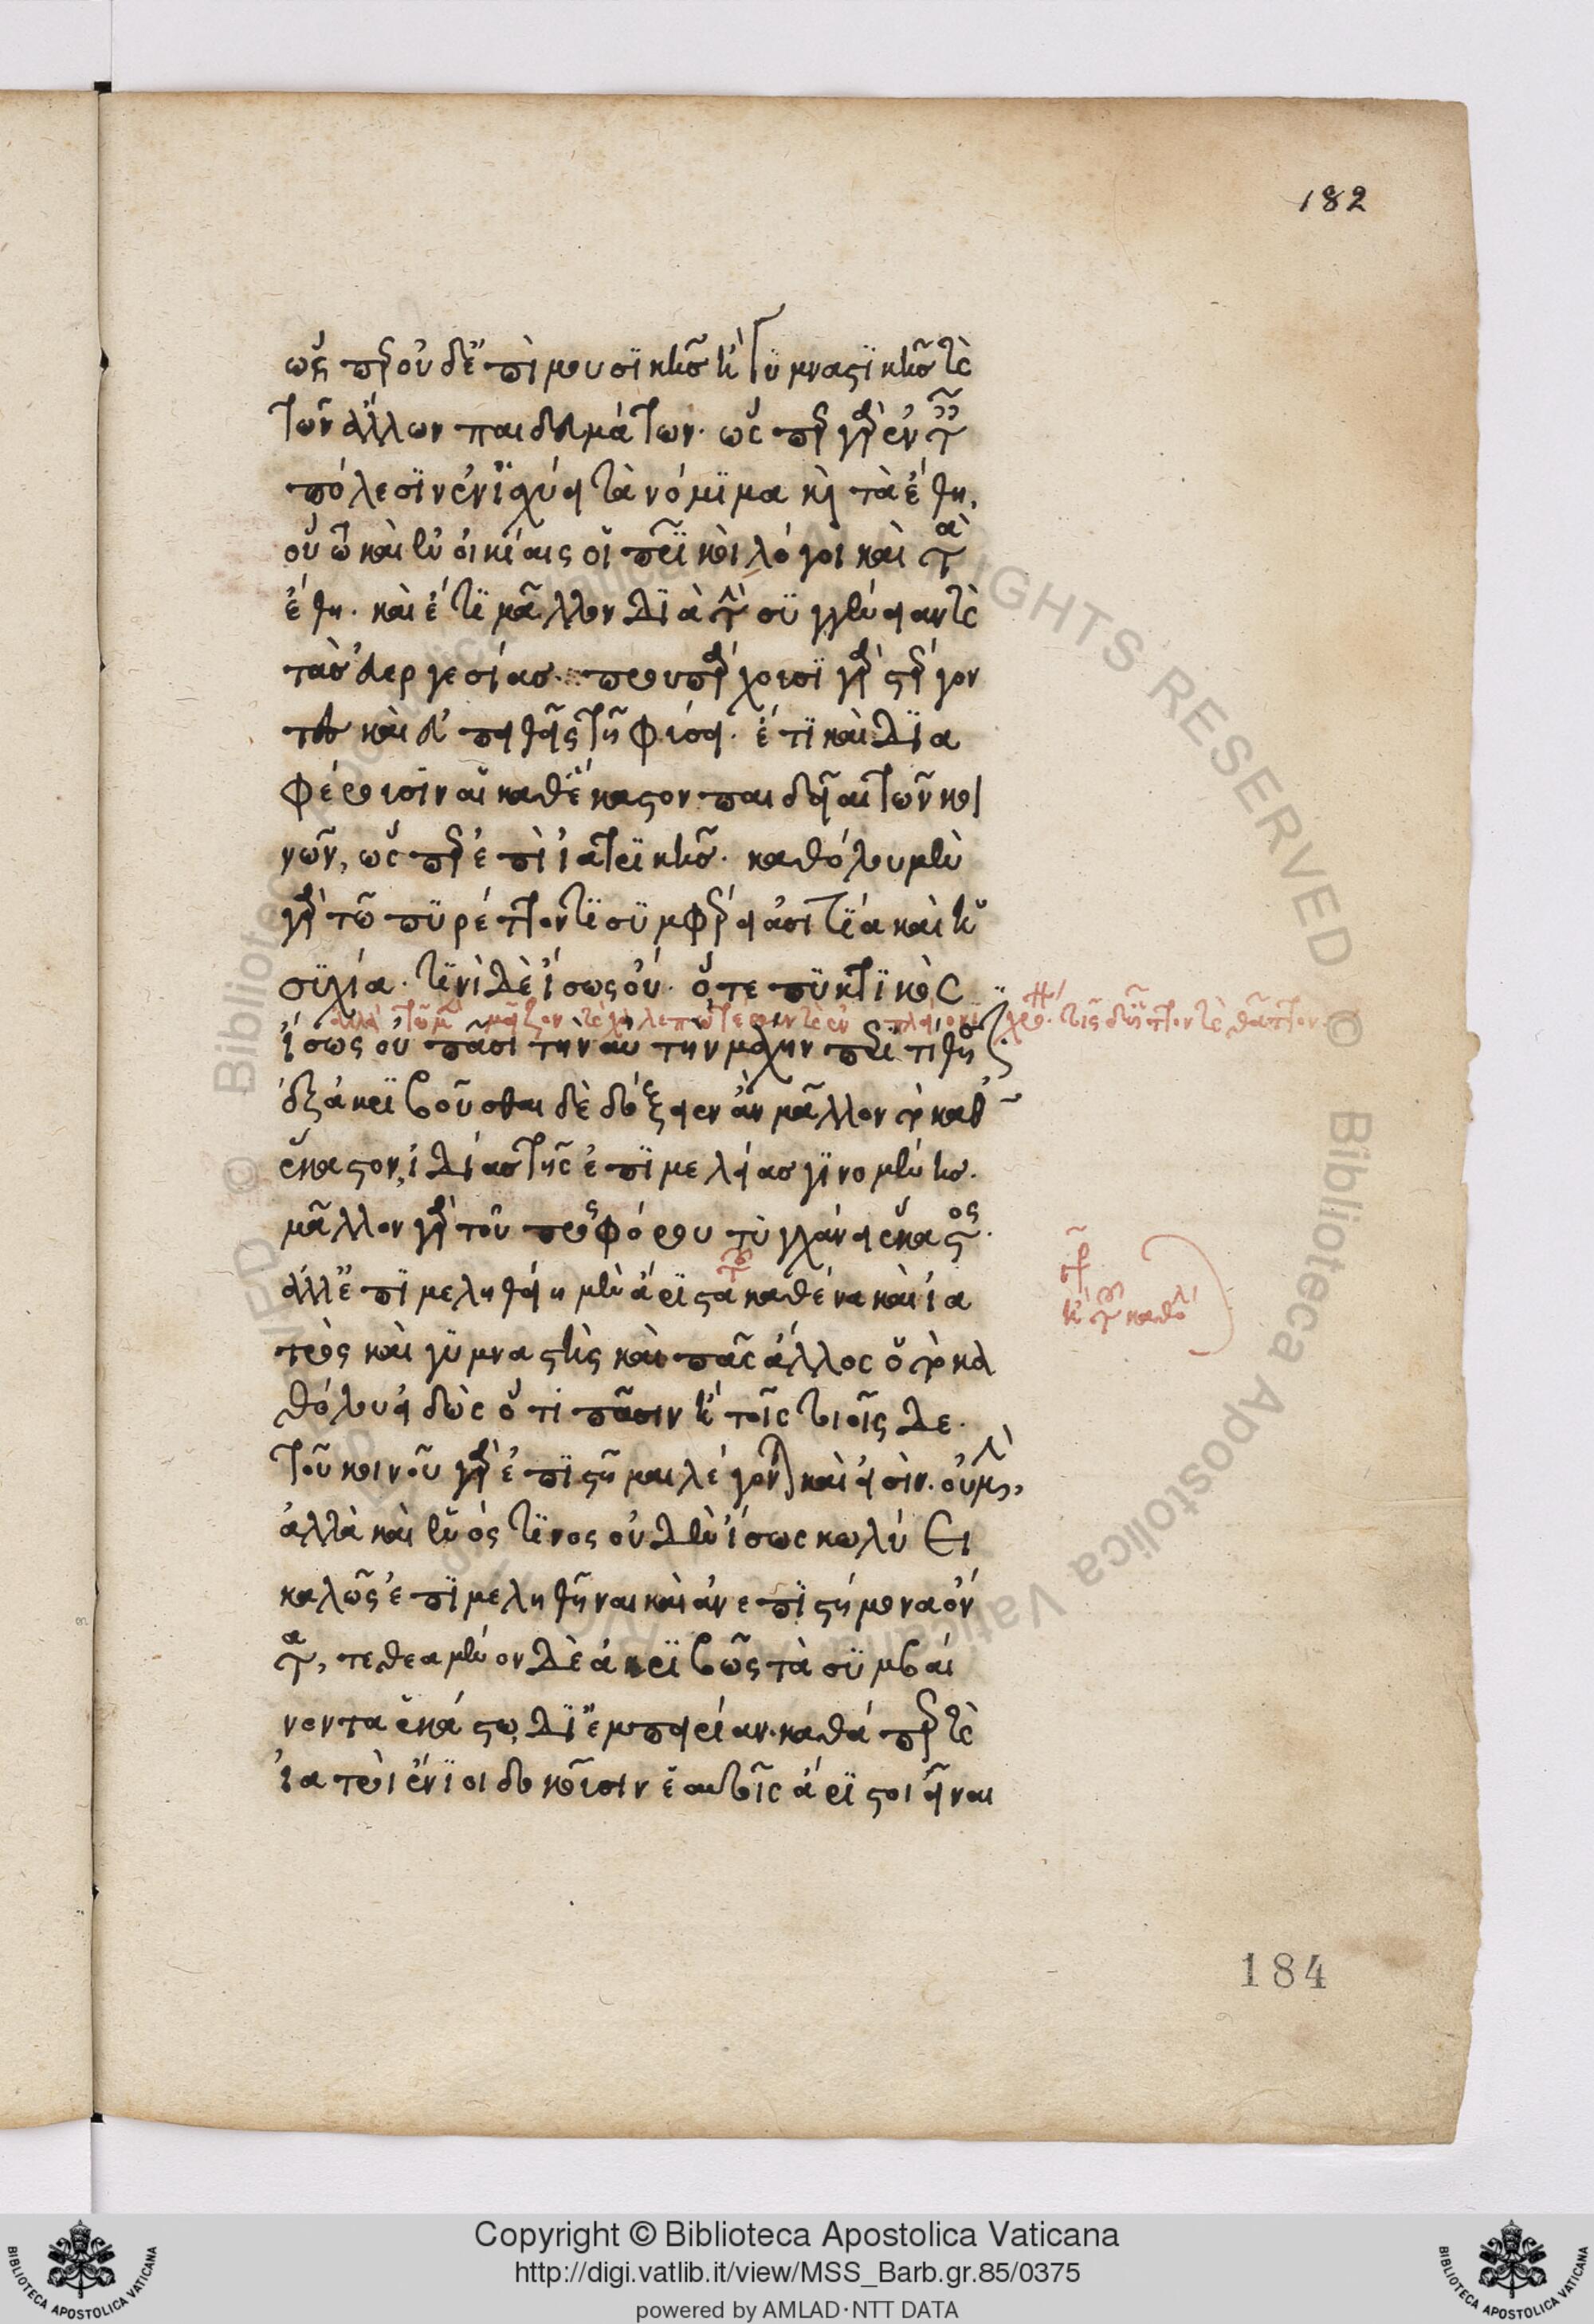 182
ὥσπερ οὐδ' ἐπὶ μουσικῆς καὶ γυμναστικῆς καὶ
τῶν ἄλλων παιδευμάτων. ὥσπερ γὰρ ἐν ταῖς
πόλεσιν ἐνισχύει τὰ νόμιμα καὶ τὰ ἔθη,
οὕτω καὶ ἐν οἰκίαις οἱ πατρικοὶ λόγοι καὶ τὰ
ἔθη. καὶ ἔτι μᾶλλον διὰ τὴν συγγένειαν καὶ
τὰς εὐεργεσίας. προυπάρχουσι γὰρ στέργον
τες καὶ εὐπειθεῖς τῇ φύσει. ἔτι καὶ δια
φέρουσιν αἱ καθ' ἕκαστον παιδεῖαι τῶν κοι
νῶν, ὥσπερ ἐπὶ ἰατρικῆς. καθόλου μὲν
γὰρ τῷ πυρέττοντι συμφέρει ἀσιτία καὶ ἡ
συχία. τινὶ δὲ ἴσως οὔ. ὅ τε πυκτικὸς
ἴσως οὐ πᾶσι τὴν αὐτὴν μάχην περιτίθησι
ἐξακριβοῦσθαι δὲ δόξειεν ἂν μᾶλλον τὸ καθ'
ἕκαστον, ἰδίας τῆς ἐπιμελείας γινομένης.
μᾶλλον γὰρ τοῦ προσφόρου τυγχάνει ἕκαστος.
ἀλλ' ἐπιμεληθείη μὲν ἄριστα καθ' ἕνα καὶ ἰα
τρὸς καὶ γυμναστὴς καὶ πᾶς ἄλλος ὁ τὸ κα
θόλου εἰδὼς ὅτι πᾶσιν ἢ τοῖς τοιοῖσδε.
τοῦ κοινοῦ γὰρ ἐπιστῆμαι λέγονται καὶ εἰσίν. οὐ μὴν,
ἀλλὰ καὶ ἑνός τινος οὐδὲν ἴσως κωλύει
καλῶς ἐπιμεληθῆναι καὶ ἀνεπιστήμονα ὄν
τα, τεθεαμένον δὲ ἀκριβῶς τὰ συμβαί
νοντα ἑκάστῳ, δι' ἐμπειρίαν. καθάπερ καὶ
ἰατροὶ ἔνιοι δοκοῦσιν ἑαυτοῖς ἄριστοι εἶναι
184
Copyright © Biblioteca Apostolica Vaticana
http://digi.vatlib.it/view/MSS_Barb.gr.85/0375
powered by AMLAD·NTT DATA